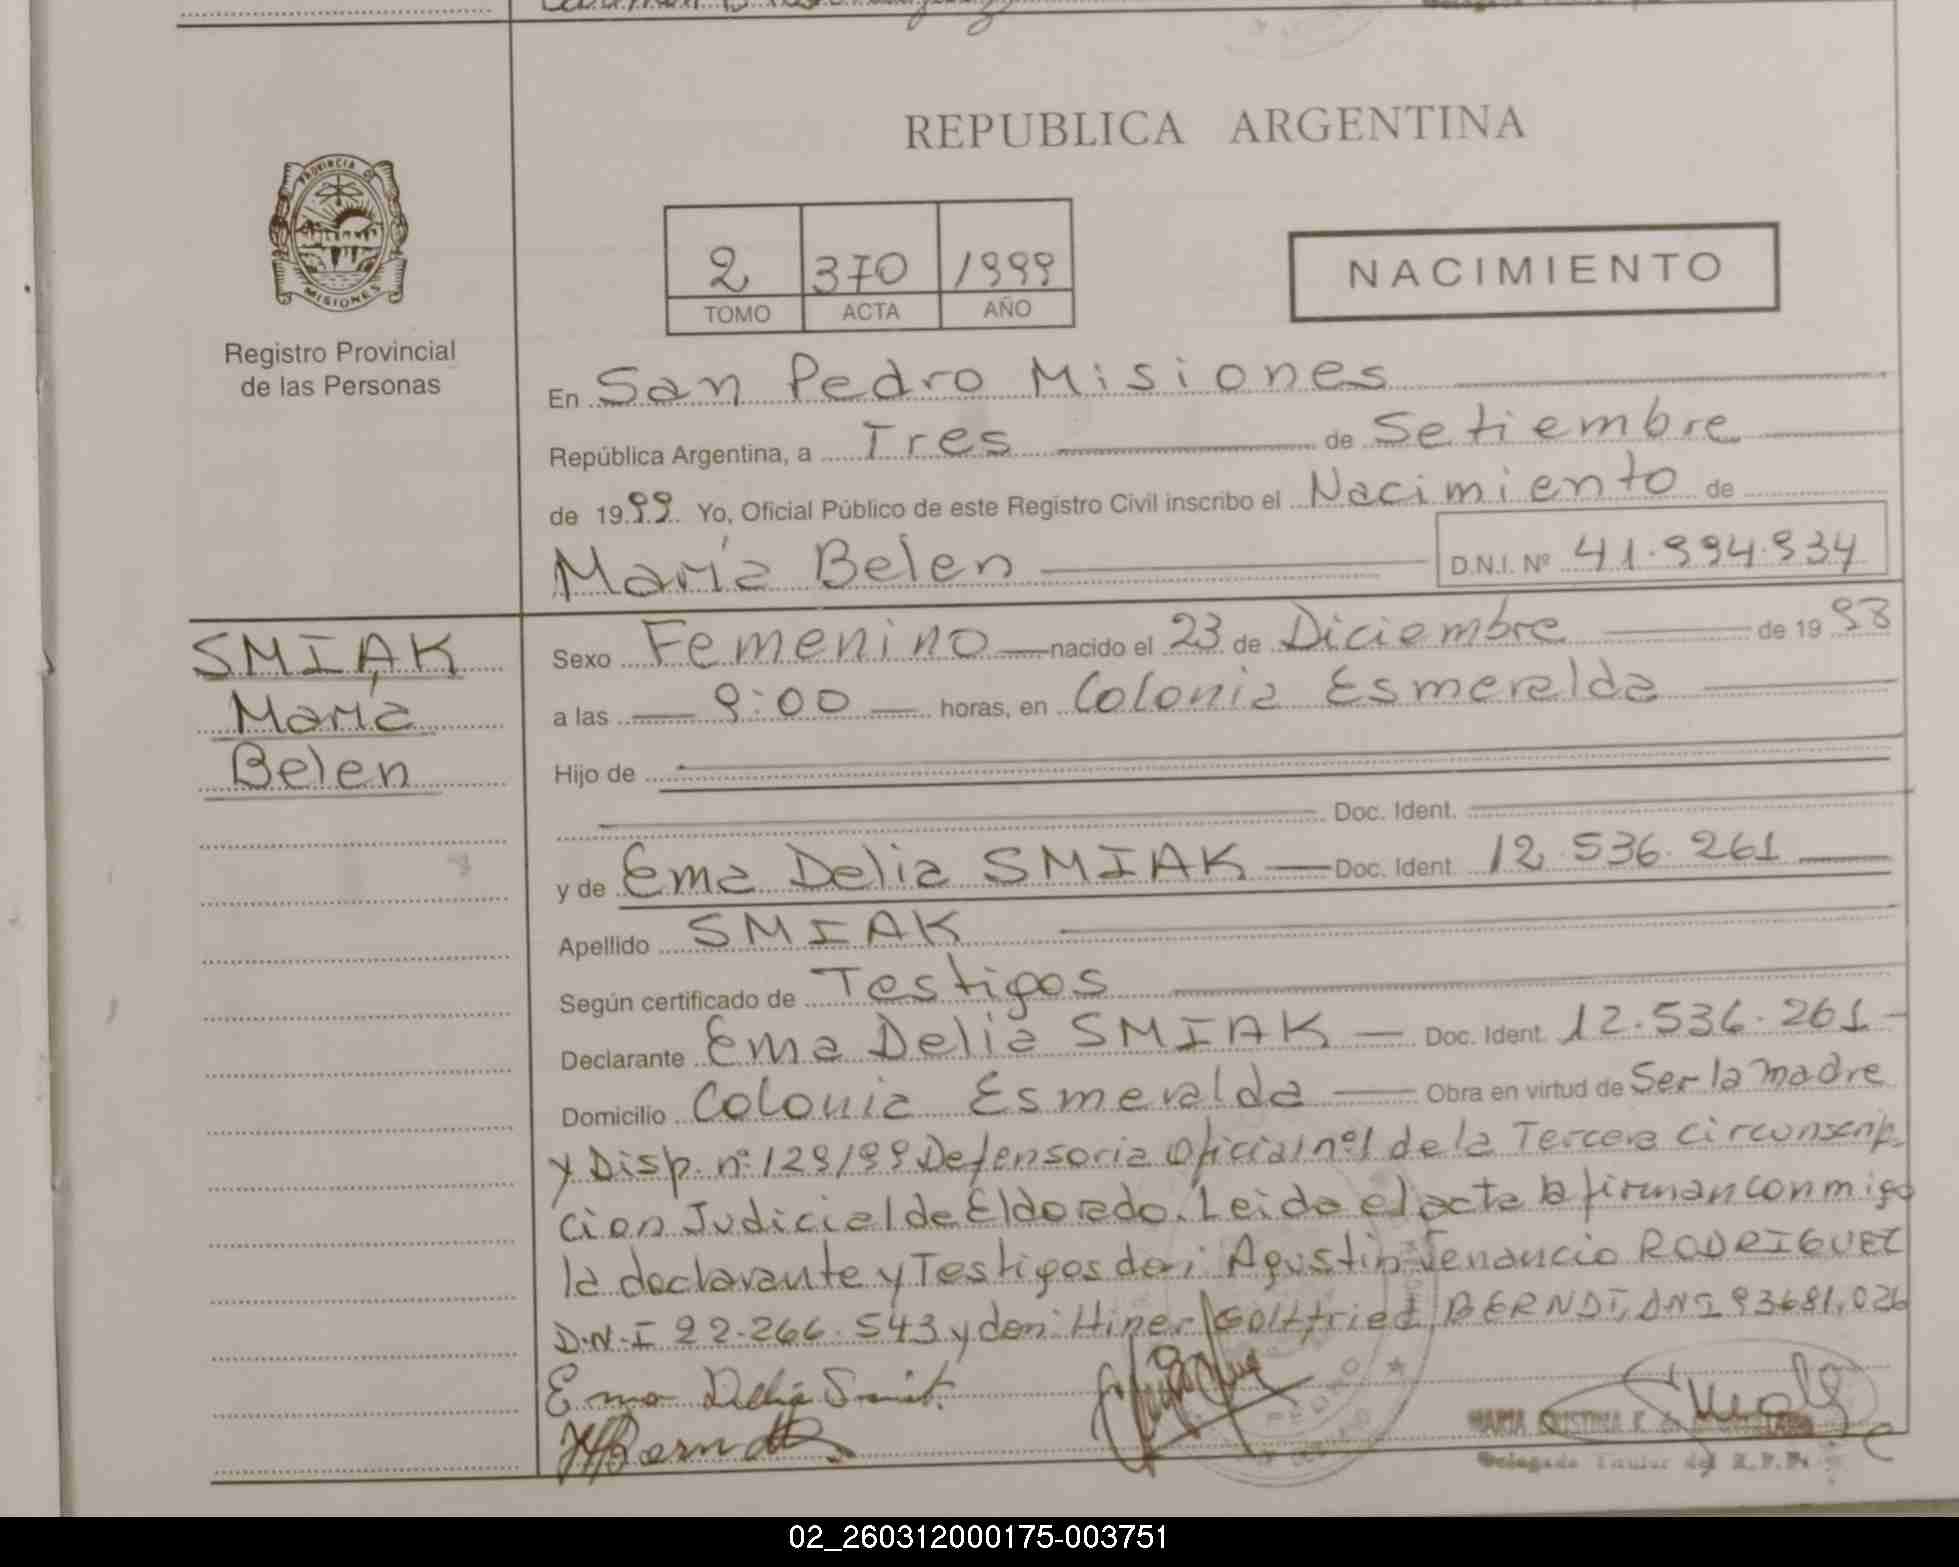 REPUBLICA ARGENTINA
PROVINCIA DE
MISIONES
Registro Provincial
de las Personas
2 370 1999
TOMO ACTA AÑO
NACIMIENTO
En San Pedro Misiones
República Argentina, a Tres de Setiembre
de 1999 Yo, Oficial Público de este Registro Civil inscribo el Nacimiento de
María Belen D.N.I. Nº 41.994.934
SMIAK
María
Belen
Sexo Femenino nacido el 23 de Diciembre de 1998
a las 9:00 horas, en Colonia Esmeralda
Hijo de
Doc. Ident.
y de Ema Delia SMIAK Doc. Ident. 12.536.261
Apellido SMIAK
Según certificado de Testigos
Declarante Ema Delia SMIAK Doc. Ident. 12.536.261
Domicilio Colonia Esmeralda Obra en virtud de Ser la madre
y Disp. nº 129/99 Defensoria Oficial nº1 de la Tercera circunscrip
cion Judicial de Eldorado. Leida el acta la firman conmigo
la declarante y Testigos don: Agustin Venancio RODRIGUEZ
D.N.I 22.266.543 y don: Hiner Goltfried BERNDT, DNI 93681.026
Ema Delia
Berndt
PEDRO
MARIA CRISTINA
Delegada Titular del R.P.P.
02_260312000175-003751